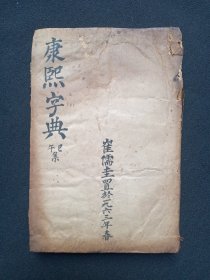 康熙字典
巳午集
崔儒圭置於一九六三年春